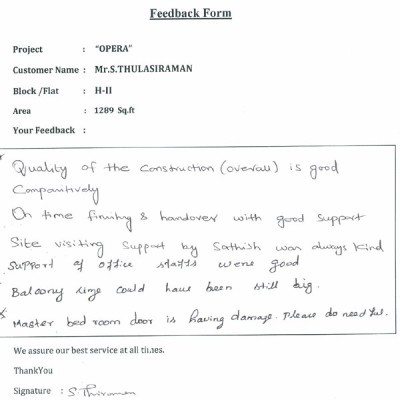 Feedback Form
Project : "OPERA"
Customer Name : Mr.S.THULASIRAMAN
Block /Flat : H-II
Area : 1289 Sq.ft
Your Feedback :
Quality of the Construction (overall) is good
Comparitively
On time finishing & handover with good support
Site visiting support by Sathish was always kind
Support of office staffs were good
Balcony size could have been still big.
Master bed room door is having damage. Please do needful.
We assure our best service at all times.
ThankYou
Signature :